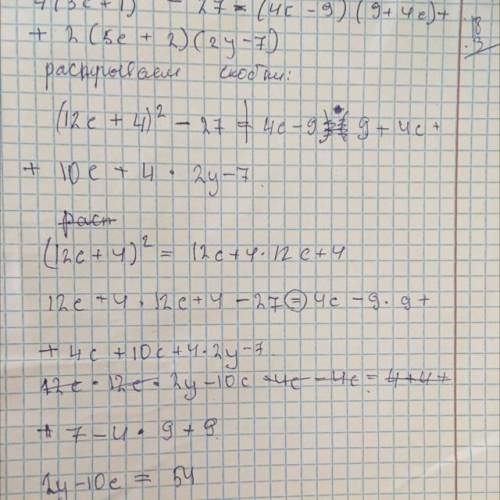 4(3c+1) - 27 = (4c-9)(9+4c)+
+ 2(5c+2)(2y-7)
раскрываем скобки:
(12c+4)² - 27 = 4c-9 9+4c+
+ 10c+4·2y-7
раст
(12c+4)² = 12c+4·12c+4
12c+4·12c+4-27=4c-9·9+
+4c+10c+4·2y-7
12c·12c·2y-10c-4c-4c=4+4+
+7-4·9+9
2y-10c = 54